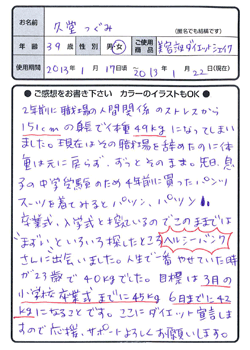 お名前
久堂 つぐみ
(匿名でも結構です)
年齢 39歳 性別 男・女
ご使用商品 美容ダイエットシェイク
使用期間 2013年1月17日頃~2013年1月22日(現在)
●ご感想をお書き下さい カラーのイラストもOK●
2年前に職場の人間関係のストレスから
151cmの身長で体重49kgになってしまい
ました。現在はその職場を辞めたのに体
重は元に戻らず、ずっとそのまま。先日、息
子の中学受験のため4年前に買ったパンツ
スーツを着てみるとパッツン、パッツン
卒業式、入学式と控えているのでこのままでは
"まずい"といろいろ探したところヘルシーバンク
さんに出会いました。人生で一番やせていた時
が23歳で40kgでした。目標は3月の
小学校卒業式までに45kg 6月までに42
kgになることです。ここにダイエット宣言しま
すので応援、サポートよろしくお願いします。